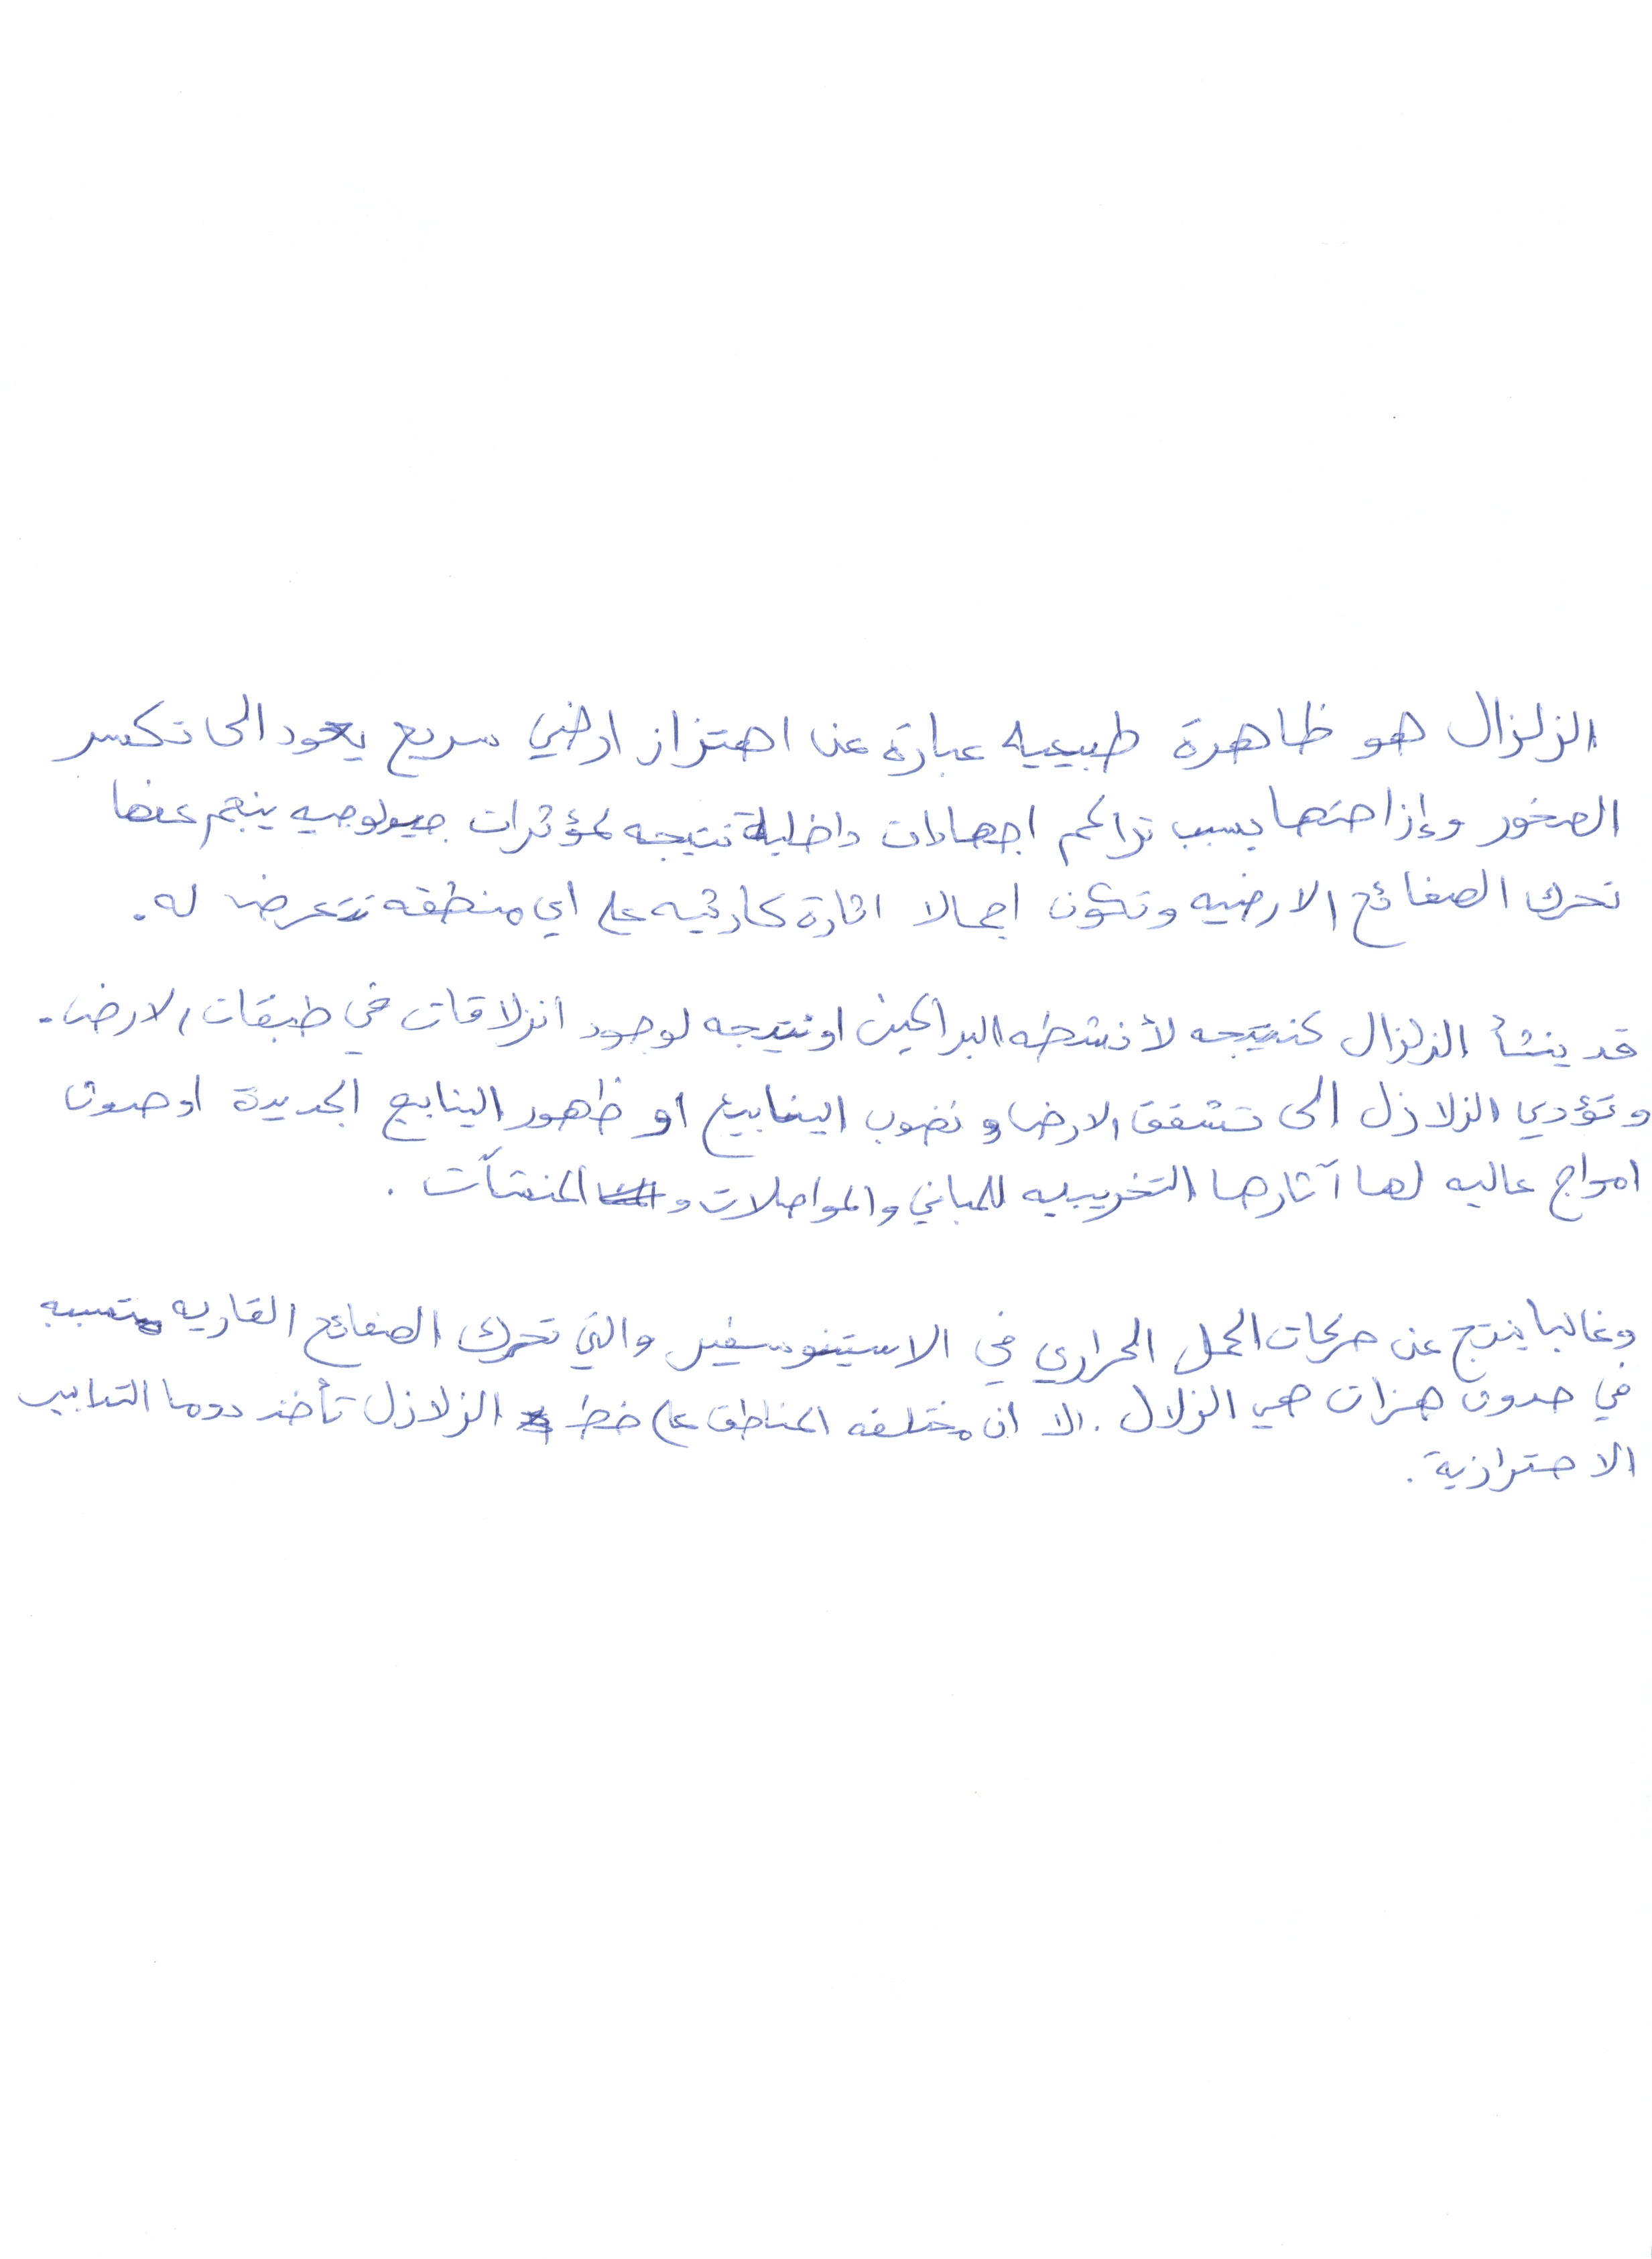 الزلزال هو ظاهرة طبيعيه عبارة عن اهتزاز ارضي سريع يعود الى تكسر
الصخور وإزاحتها بسبب تراكم اجهادات داخلية نتيجه لمؤثرات جيولوجيه ينجم عنها
تحرك الصفائح الارضيه وتكون اجمالا اثارة كارثيه على اي منطقه تتعرض له.
قد ينشأ الزلزال كنتيجه لأنشطه البراكين او نتيجه لوجود انزلاقات في طبقات الارض.
وتؤدي الزلازل الى تشقق الارض و نضوب الينابيع او ظهور الينابع الجديدة او حدوث
امواج عاليه لها آثارها التخريبيه للمباني والمواصلات و المنشآت .
وغالبا ينتج عن حركات الحمل الحراري في الاستينوسفير والتي تحرك الصفائح القاريه متسببه
في حدوث هزات هي الزلال . الا ان مختلفه المناطق على خط الزلازل تأخذ دوما التدابير
الاحترازية .